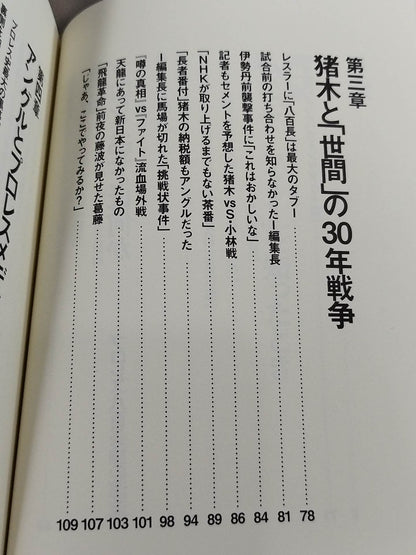 第三章
猪木と「世間」の30年戦争
レスラーに「八百長」は最大のタブー……78
試合前の打ち合わせを知らなかったI編集長……81
伊勢丹前襲撃事件に「これはおかしいな」……84
記者もセメントを予想した猪木vsS・小林戦……86
「NHKが取り上げるまでもない茶番」……89
「長者番付」猪木の納税額もアングルだった……94
I編集長に馬場が切れた「挑戦状事件」……98
『噂の真相』vs『ファイト』流血場外戦……101
天龍にあって新日本になかったもの……103
「飛龍革命」前夜の藤波が見せた葛藤……107
「じゃあ、ここでやってみるか?」……109
第四章